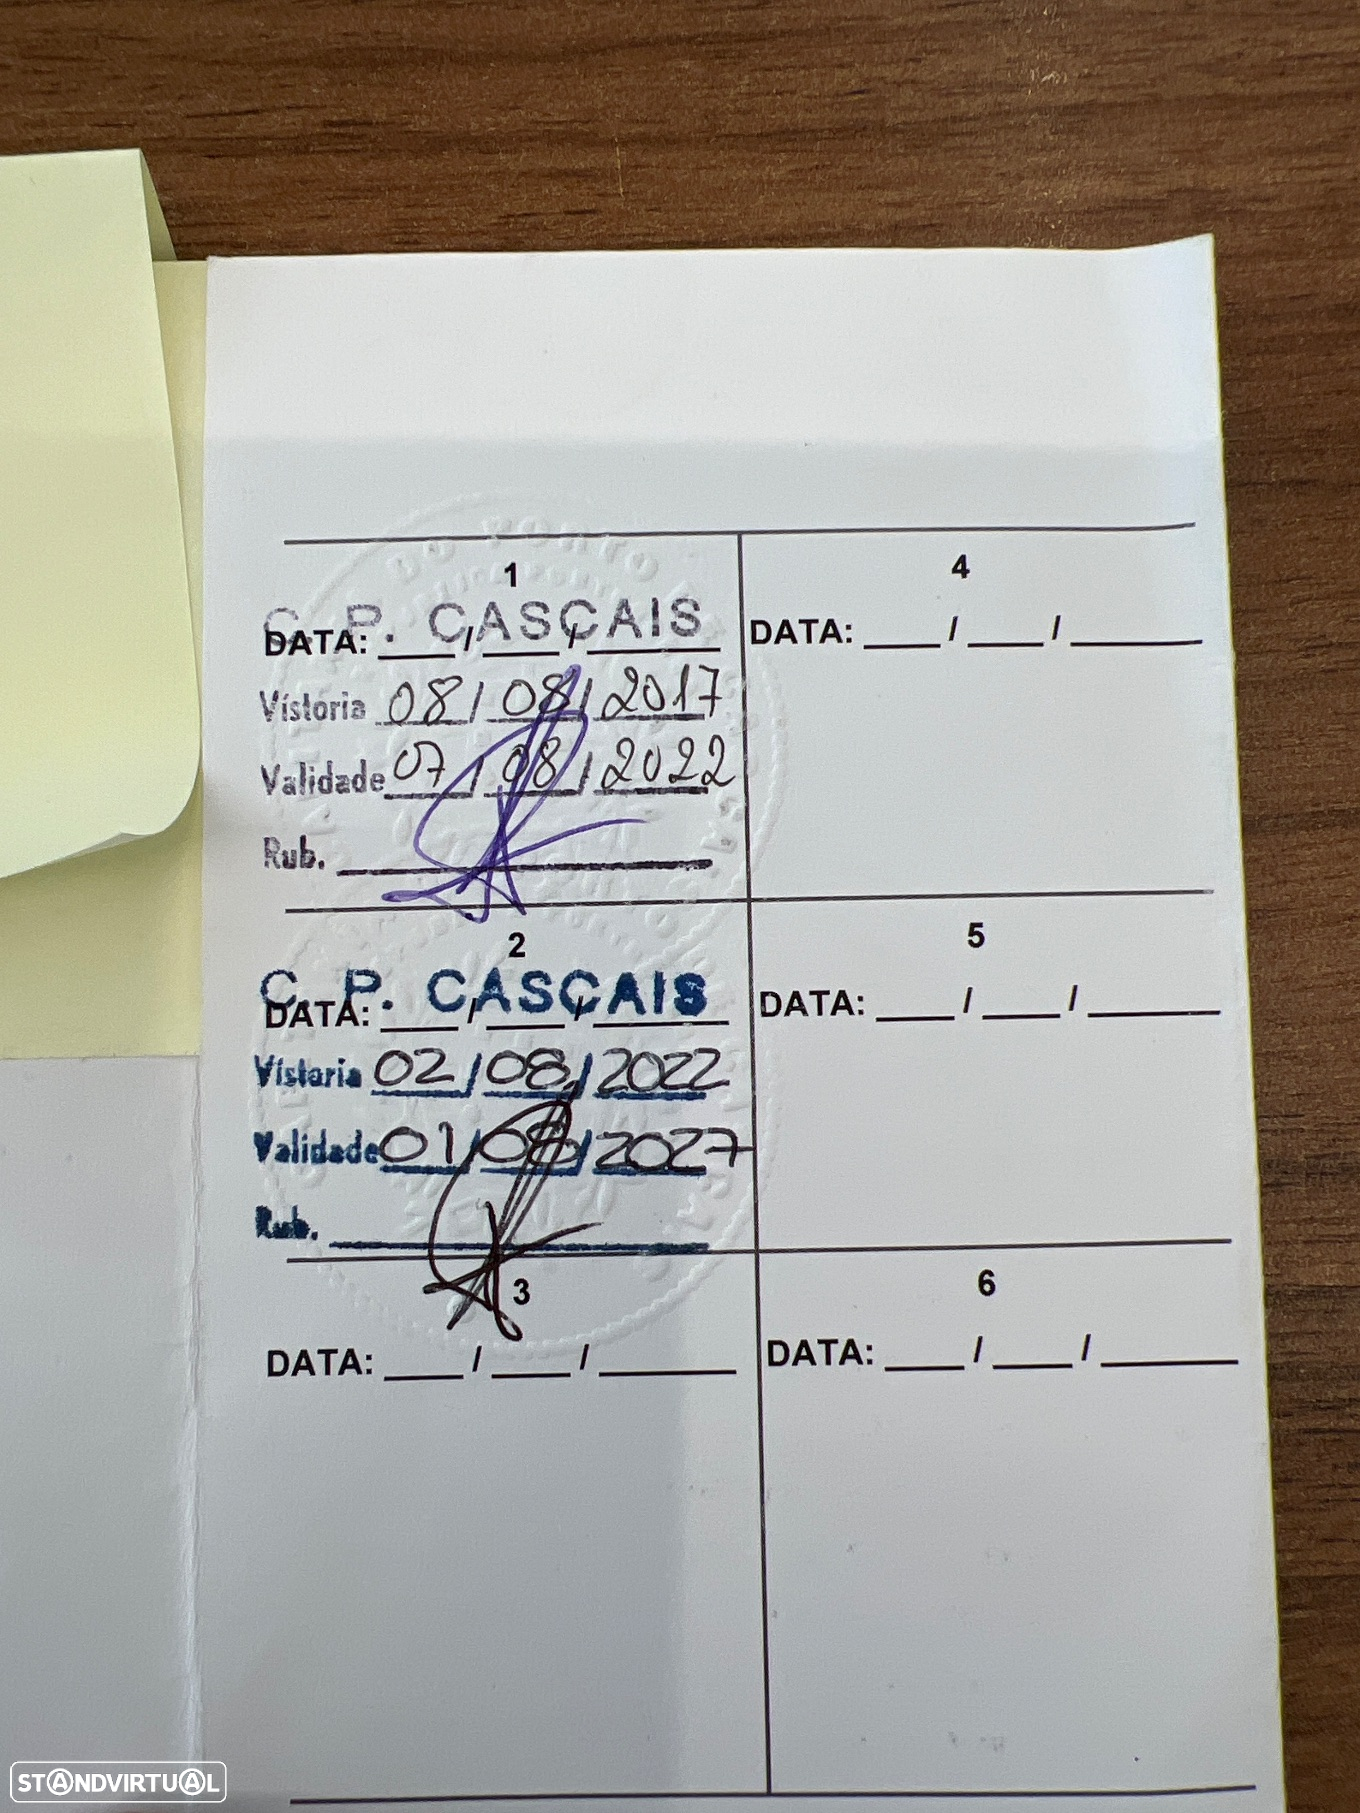 1
C. P. CASCAIS
DATA: ___/___/_____
Vistoria 08/08/2017
Validade 07/08/2022
Rub.
2
C. P. CASCAIS
DATA: ___/___/_____
Vistoria 02/08/2022
Validade 01/08/2027
Rub.
3
DATA: ___/___/_____
4
DATA: ___/___/_____
5
DATA: ___/___/_____
6
DATA: ___/___/_____
STANDVIRTUAL